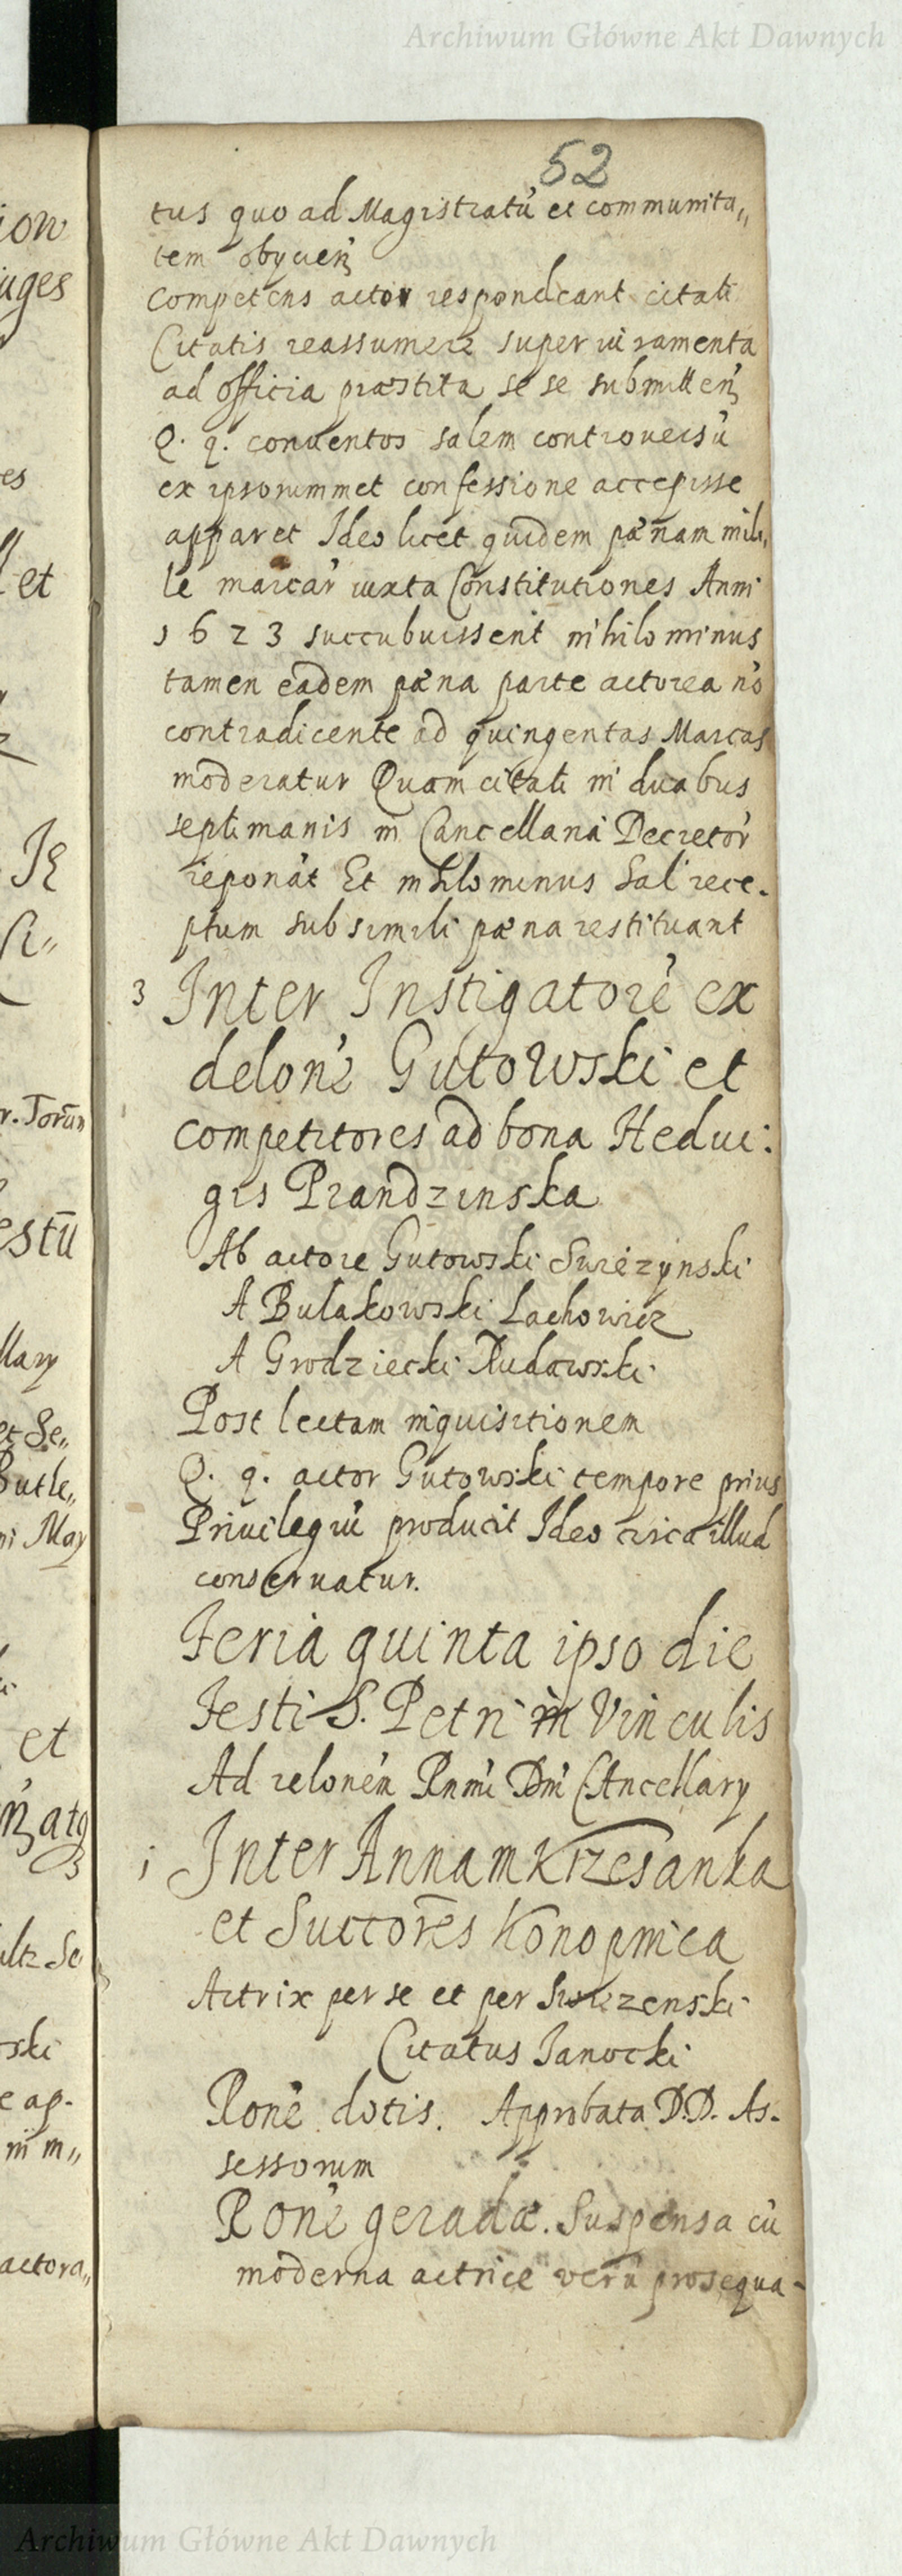 Archiwum Główne Akt Dawnych
52
tus quo ad Magistratū et communita„
tem obijcien
Competens actor respondeant citati
Citatis reassumere super iuramenta
ad officia præstita se se submitten
Q. q. conuentos salem controuersū
ex ipsorummet confessione accepisse
apparet Ideo licet quidem pænam mil„
le marcar iuxta Constitutiones Anni
1623 succubuissent nihilominus
tamen eadem pæna parte actorea nō
contradicente ad quingentas Marcas
moderatur Quam citati in duabus
septimanis in Cancellaria Decretor
reponāt Et nihilominus Sal rece-
ptum sub simili pæna restituant
3 Inter Instigatorē ex
delonē Gutowski et
competitores ad bona Hedui:
gis Prandzinska
Ab actore Gutowski Swiezynski
A Bulakowski Lachowicz
A Grodziecki Rudawski
Post lectam inquisitionem
Q. q. actor Gutowski tempore prius
Priuilegiū producit Ideo circa illud
conseruatur.
Feria quinta ipso die
Festi S. Petri in Vinculis
Ad relonēm Rnmi Dni Cancellary
1 Inter Annam Krzesanka
et Succorēs Konopnica
Actrix per se et per Swiezenski
Citatus Janocki
Ronē dotis. Approbata D.D. As-
sessorum
Ronē geradæ. Suspensa cū
moderna actrice verū prosequa-
Archiwum Główne Akt Dawnych